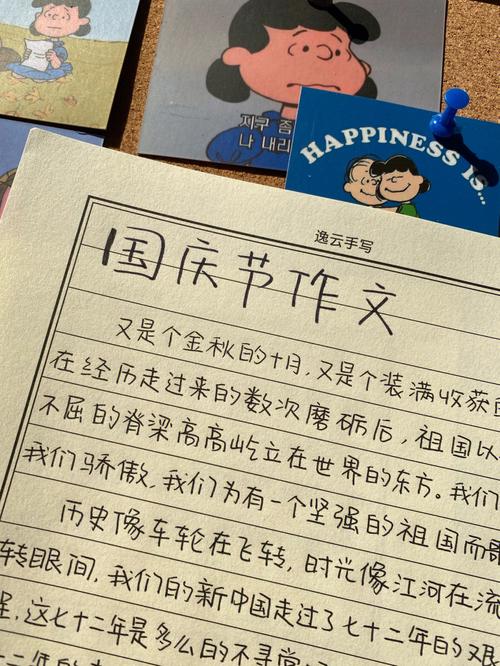 지구 좀
나 내리
HAPPINESS IS...
逸云手写
国庆节作文
又是个金秋的十月,又是个装满收获
在经历走过来的数次磨砺后,祖国以
不屈的脊梁高高屹立在世界的东方。我们
我们骄傲,我们为有一个坚强的祖国而
历史像车轮在飞转,时光像江河在流
转眼间,我们的新中国走过了七十二年的艰
这七十二年是多么的不寻常
十二年的